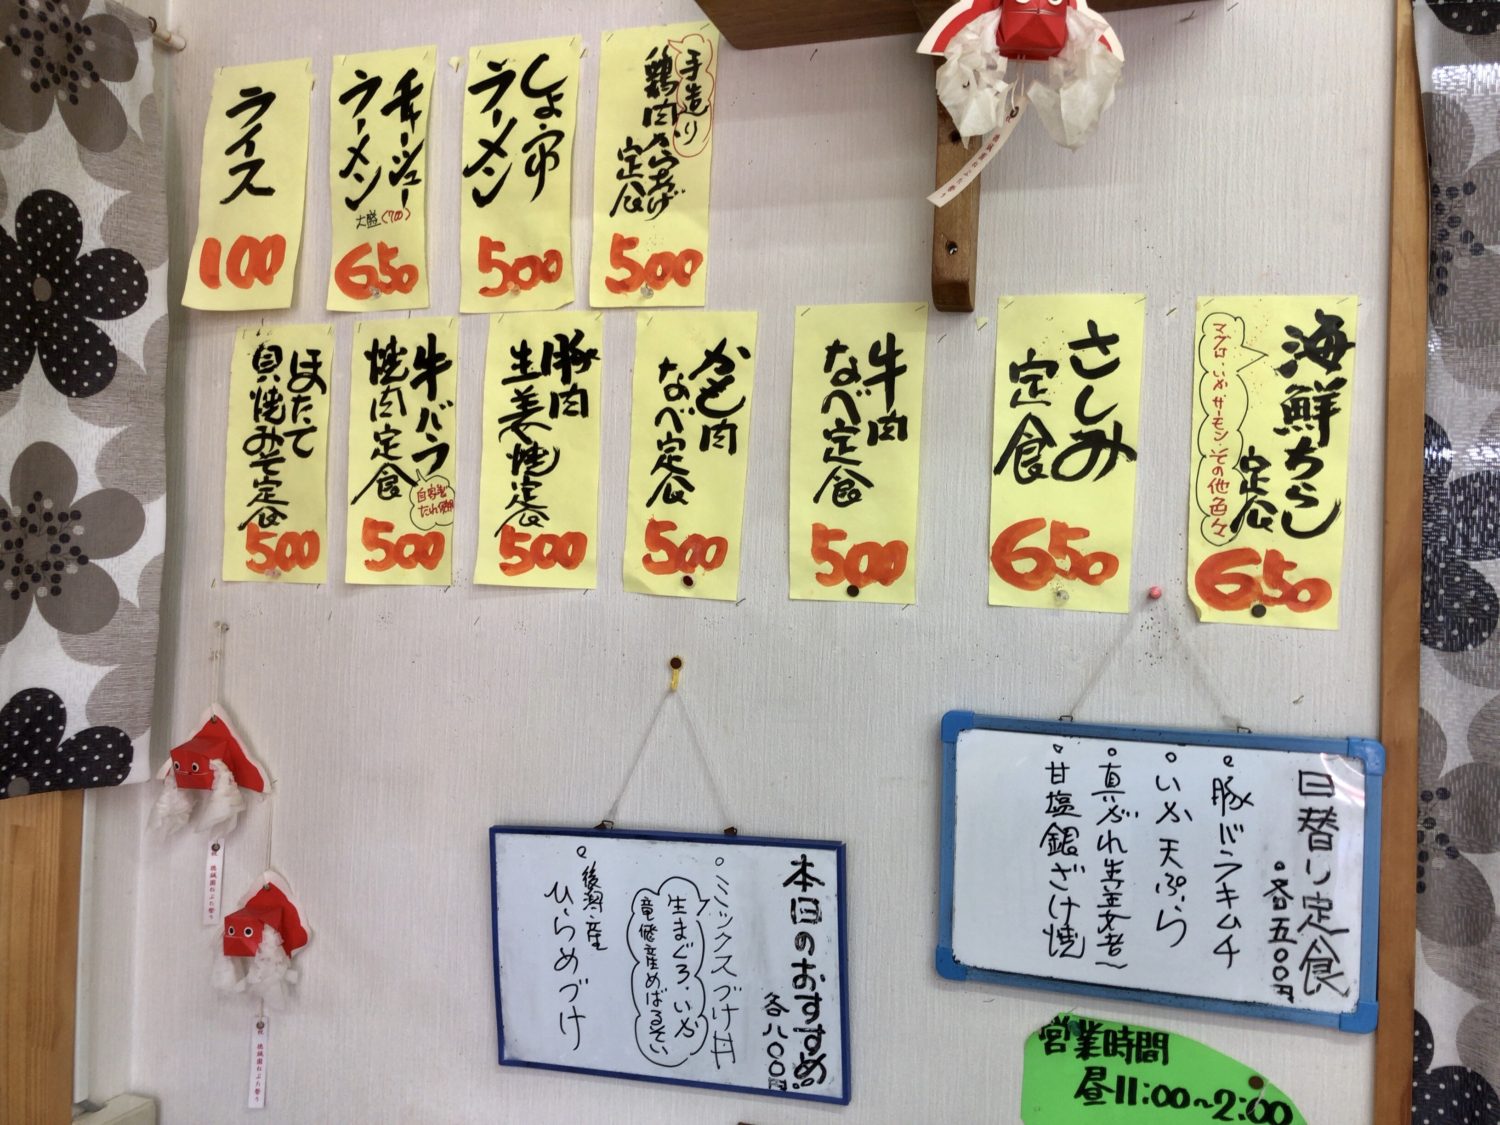 手造り
鶏肉からあげ
定食
500
しょうゆ
ラーメン
500
チャーシュー
ラーメン
大盛
650
ライス
100
海鮮ちらし
定食
マグロ・いか・サーモン・その他色々
650
さしみ
定食
650
牛肉
なべ定食
500
かも肉
なべ定食
500
豚肉
生姜焼定食
500
牛バラ
焼肉定食
自家製
たれ使用
500
ほたて
貝焼みそ定食
500
日替り定食
・各五〇〇円
・豚バラキムチ
・いか天ぷら
・真がれ生姜煮
・甘塩銀ざけ焼
本日のおすすめ
各八〇〇円
・ミックスづけ丼
生まぐろ・いか
竜飛産めばるそい
・後潟産
ひらめづけ
営業時間
昼11:00~2:00